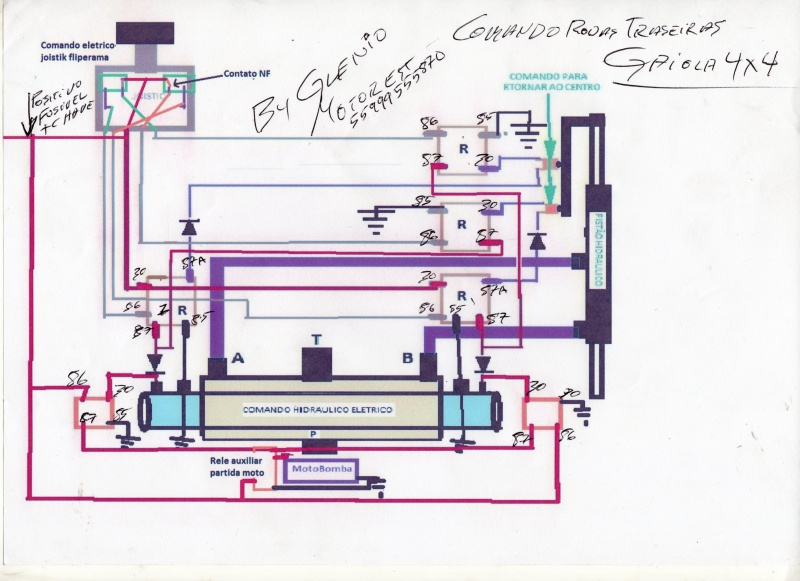 COMANDO RODAS TRASEIRAS
GAIOLA 4X4
By GLENIO
MOTOREST
55999555870
Comando eletrico
joistik fliperama
Contato NF
JOISTIC
POSITIVO
FUSIVEL
+ CHAVE
COMANDO PARA
RTORNAR AO CENTRO
86
85
R
87
30
85
30
R
86
87
PISTÃO HIDRAULICO
87A
30
86
R
85
87
30
87A
R
86
85
87
A
T
B
86
30
87
85
COMANDO HIDRAULICO ELETRICO
P
30
30
87
86
Rele auxiliar
partida moto
MotoBomba